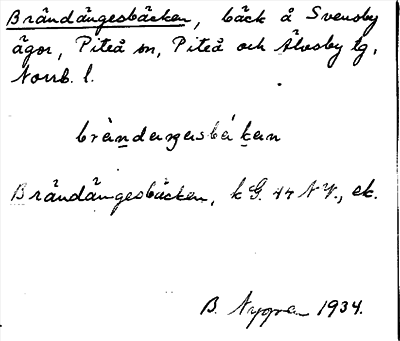 Brändängesbäcken, bäck å Svensby
ägor, Piteå sn, Piteå och Älvsby tg,
Norrb. l.
brändaŋasbäkan
Brändängesbäcken, k G. 44 NV., ek.
B. Nygren 1934.